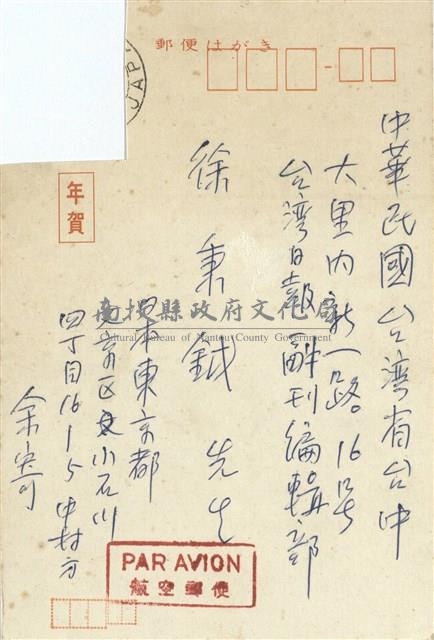 郵便はがき
JAP
年賀
中華民國台湾省台中
大里内新一路。16号
台湾日報副刊編輯部
徐秉鉞先生
日本東京都
文京区小石川
四丁目16-1-5 中村方
余
南投縣政府文化局
Cultural Bureau of Nantou County Government
PAR AVION
航空郵便